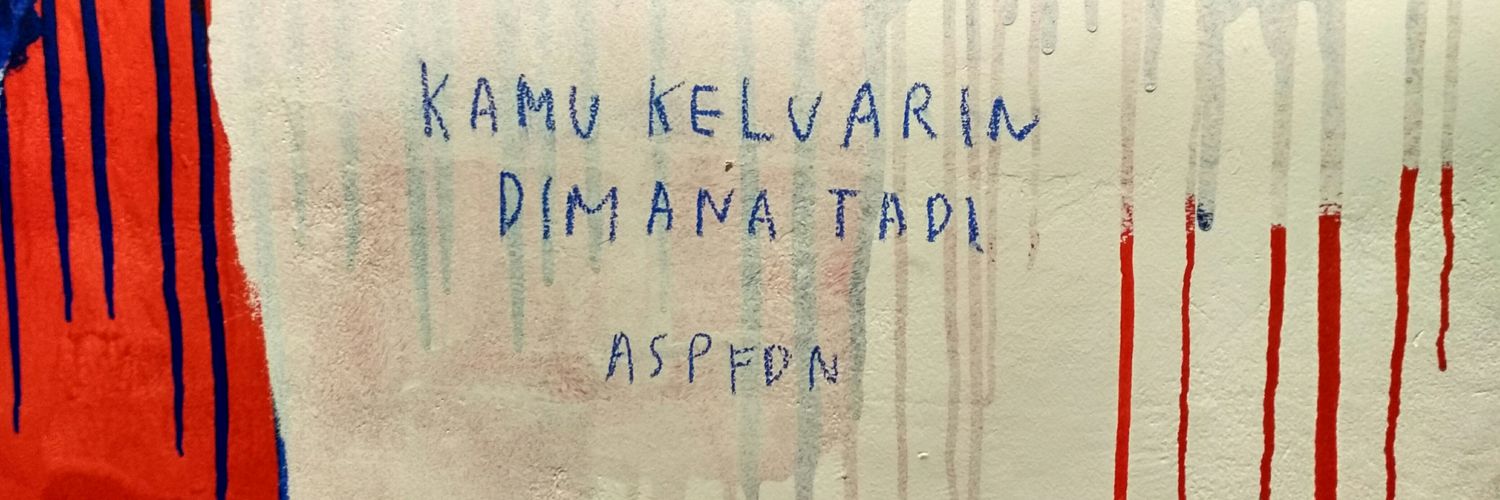 KAMU KELUARIN
DIMANA TADI
ASPFDN